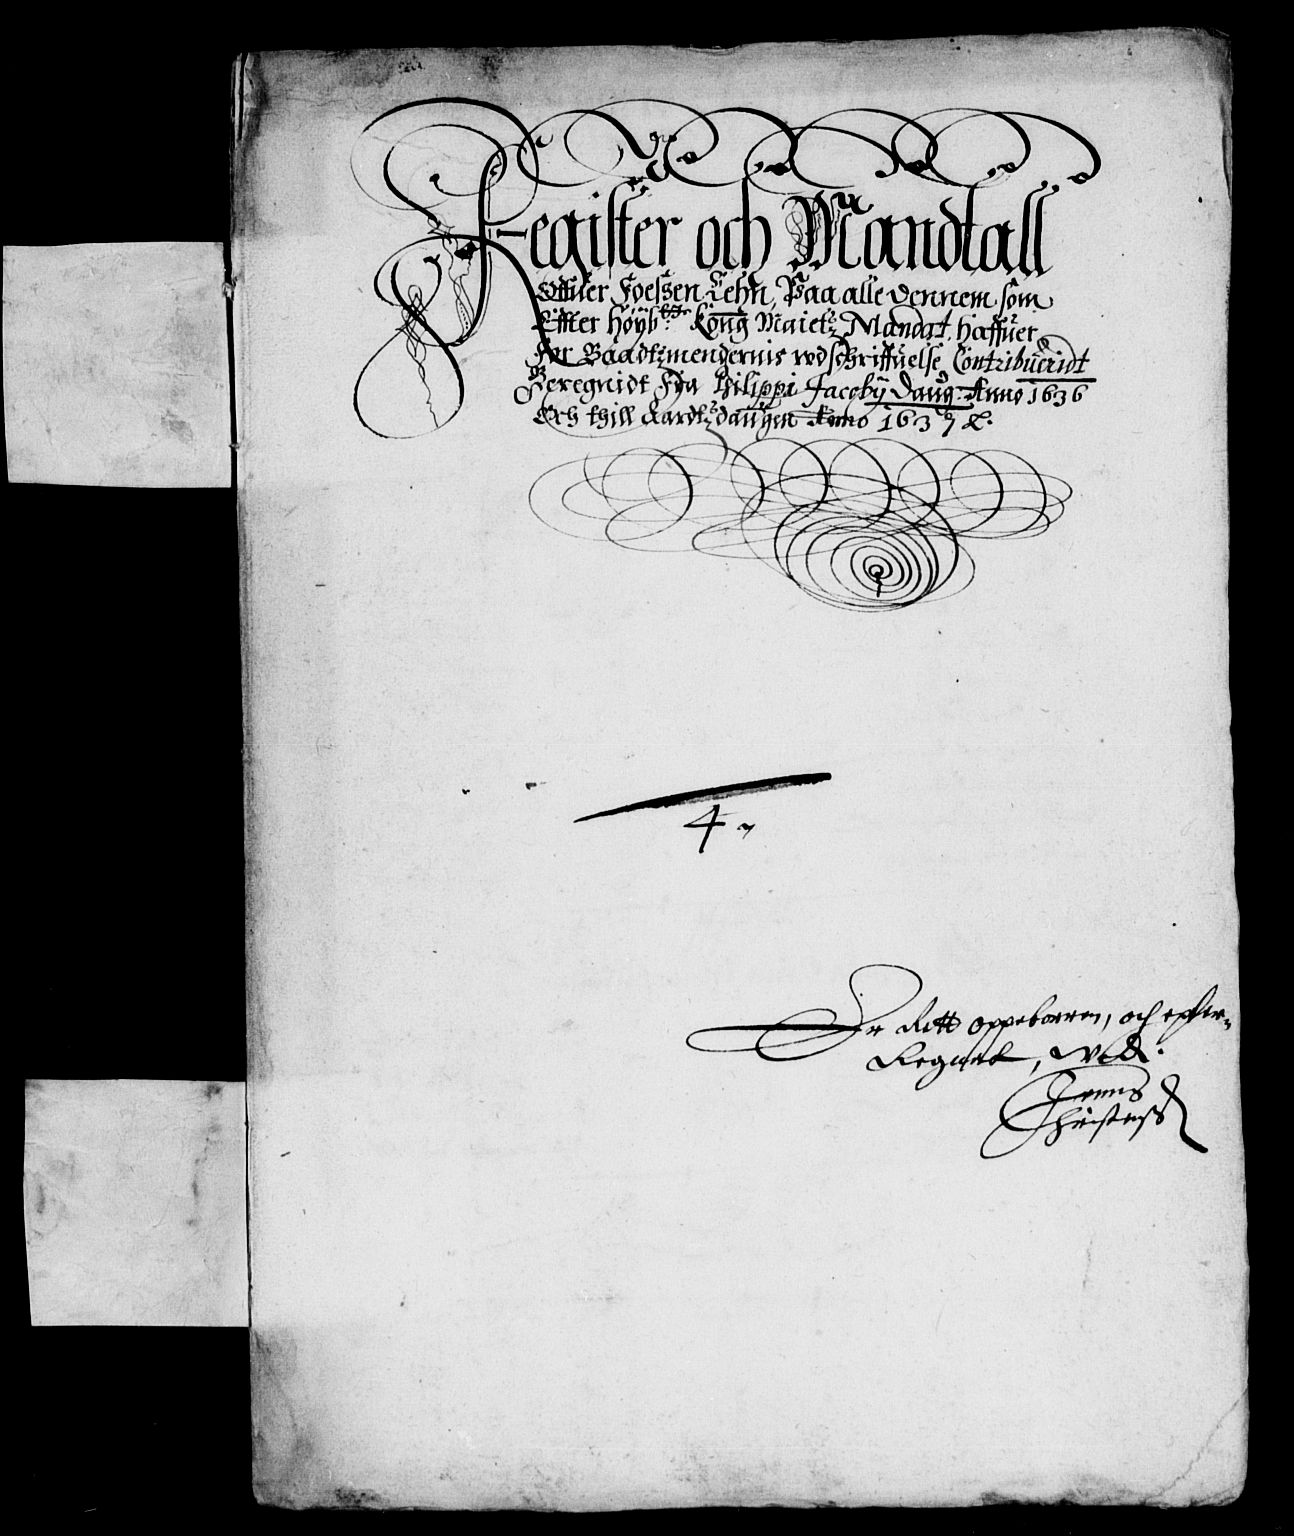 Register och Mandtall
Offuer Foessen Lehn, Paa alle dennem som
Effter Höyb: Kong Maietz Mandat, haffuer
for Baadtzmendernis wdschriffuelse Contribueridt
Beregnidt Fra Philippi Jacobÿ Daug. Anno 1636
Och thill Aardtzdaugen Anno 1637 &.
4
Er rett oppeborren, och effter
Regnet, Ved.
Jenns
Christenß